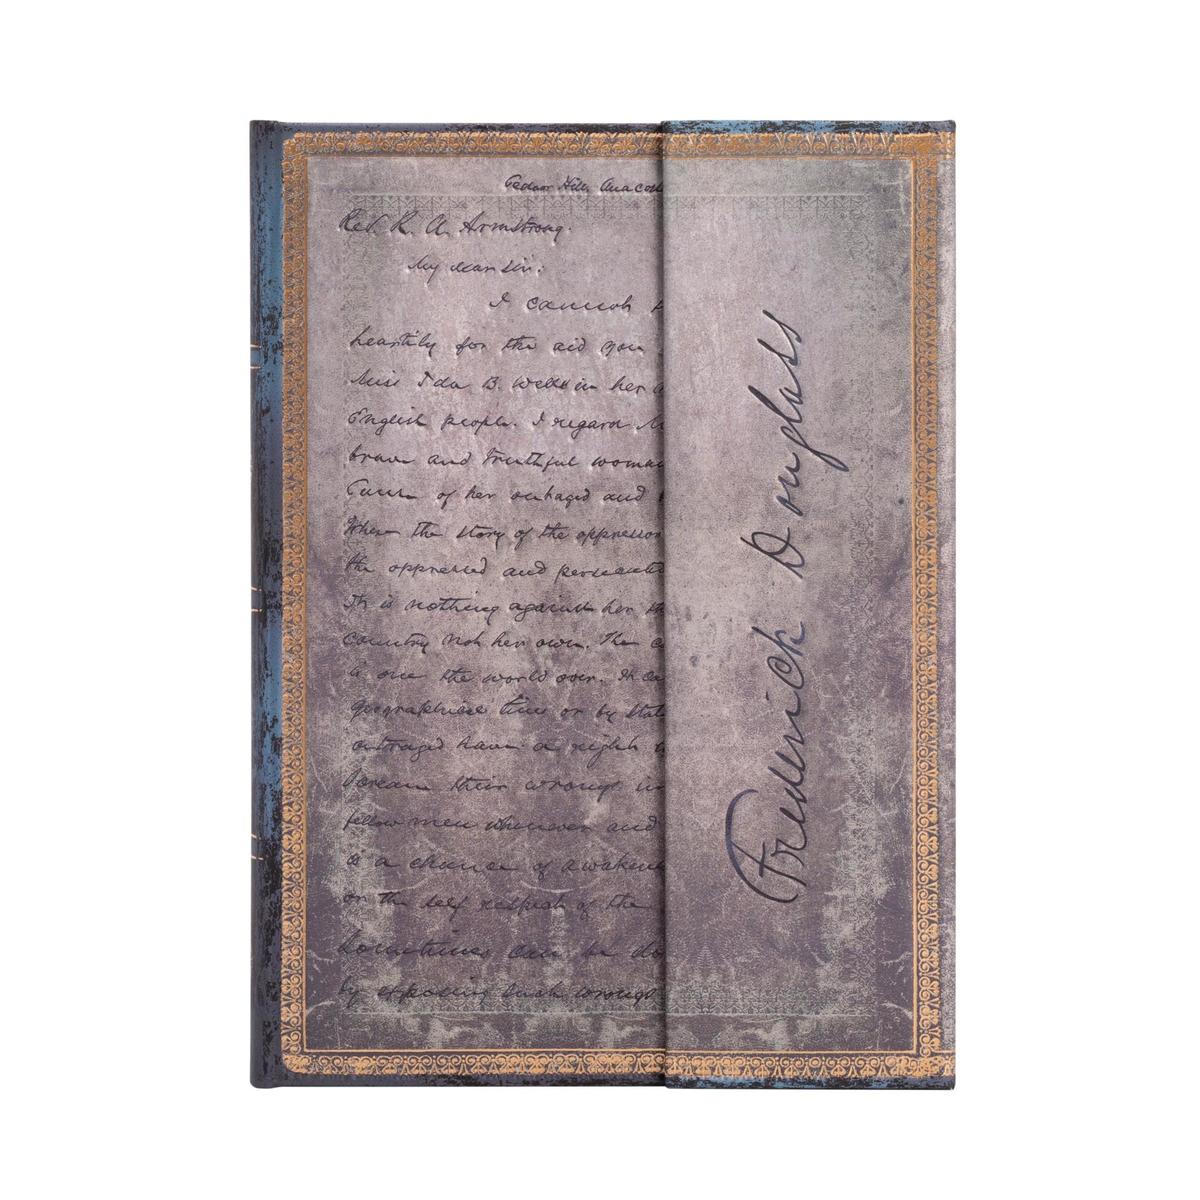 Cedar Hill, Anacos
Rev. R. A. Armstrong.
My dear Sir:
I cannot
heartily for the aid you
Miss Ida B. Wells in her
English people. I regard M
brave and truthful woman
Cause of her outraged and
When the story of the oppression
the oppressed and persecuted
It is nothing against her th
Country not her own. The c
is one the world over. It ca
geographical lines or by State
outraged have a right
scream their wrongs in
fellow men whenever and
is a chance of awaken
or the self respect of the
Sometimes can be do
by exposing such wrongs
Frederick Douglass